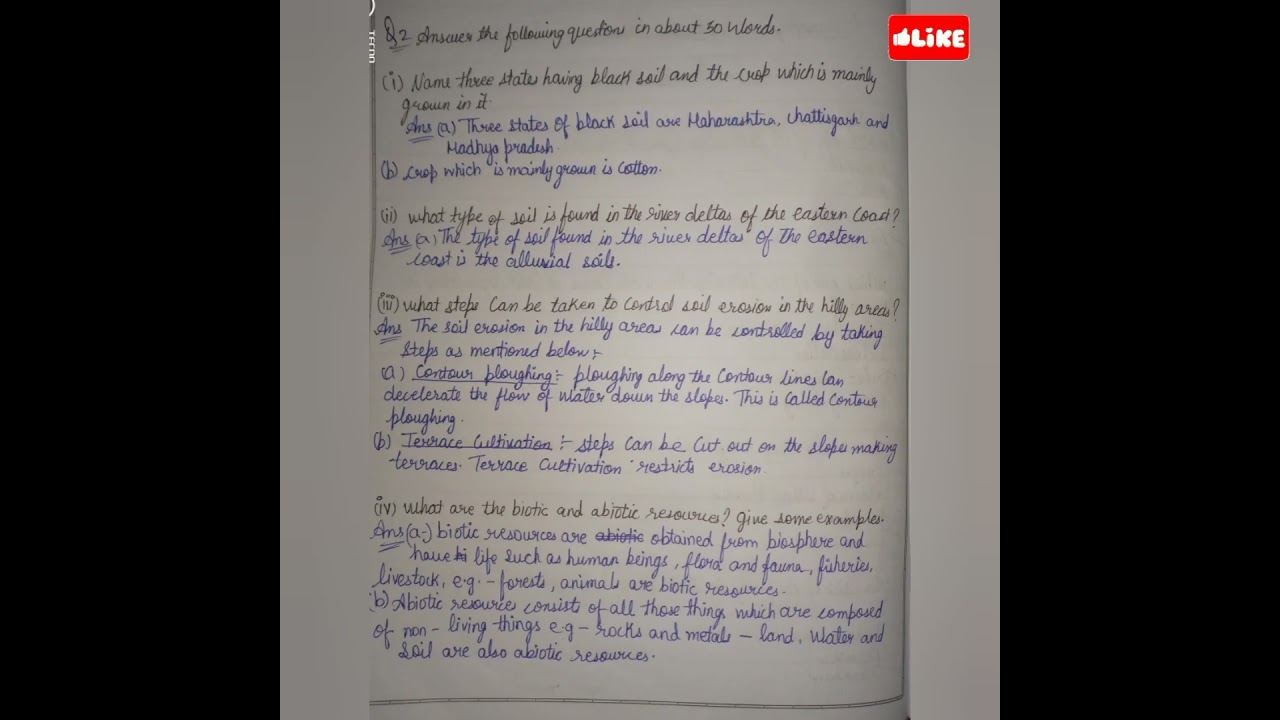 LIKE
TECNO
Q2 Answer the following question in about 30 words.
(i) Name three states having black soil and the crop which is mainly
grown in it.
Ans (a) Three states of black soil are Maharashtra, Chattisgarh and
Madhya pradesh.
(b) Crop which is mainly grown is Cotton.
(ii) what type of soil is found in the river deltas of the eastern coast?
Ans (a) The type of soil found in the river deltas of the eastern
coast is the alluvial soils.
(iii) what steps Can be taken to control soil erosion in the hilly areas?
Ans The soil erosion in the hilly areas can be controlled by taking
steps as mentioned below:-
(a) Contour ploughing:- ploughing along the Contour lines Can
decelerate the flow of water down the slopes. This is Called Contour
ploughing.
(b) Terrace Cultivation:- steps Can be Cut out on the slopes making
terraces. Terrace Cultivation restricts erosion.
(iv) what are the biotic and abiotic resources? give some examples.
Ans (a-) biotic resources are abiotic obtained from biosphere and
have li life such as human beings, flora and fauna, fisheries,
livestock, e.g. - forests, animals are biotic resources.
b) Abiotic resources consists of all those things which are composed
of non-living things e.g - rocks and metals - land, Water and
Soil are also abiotic resources.